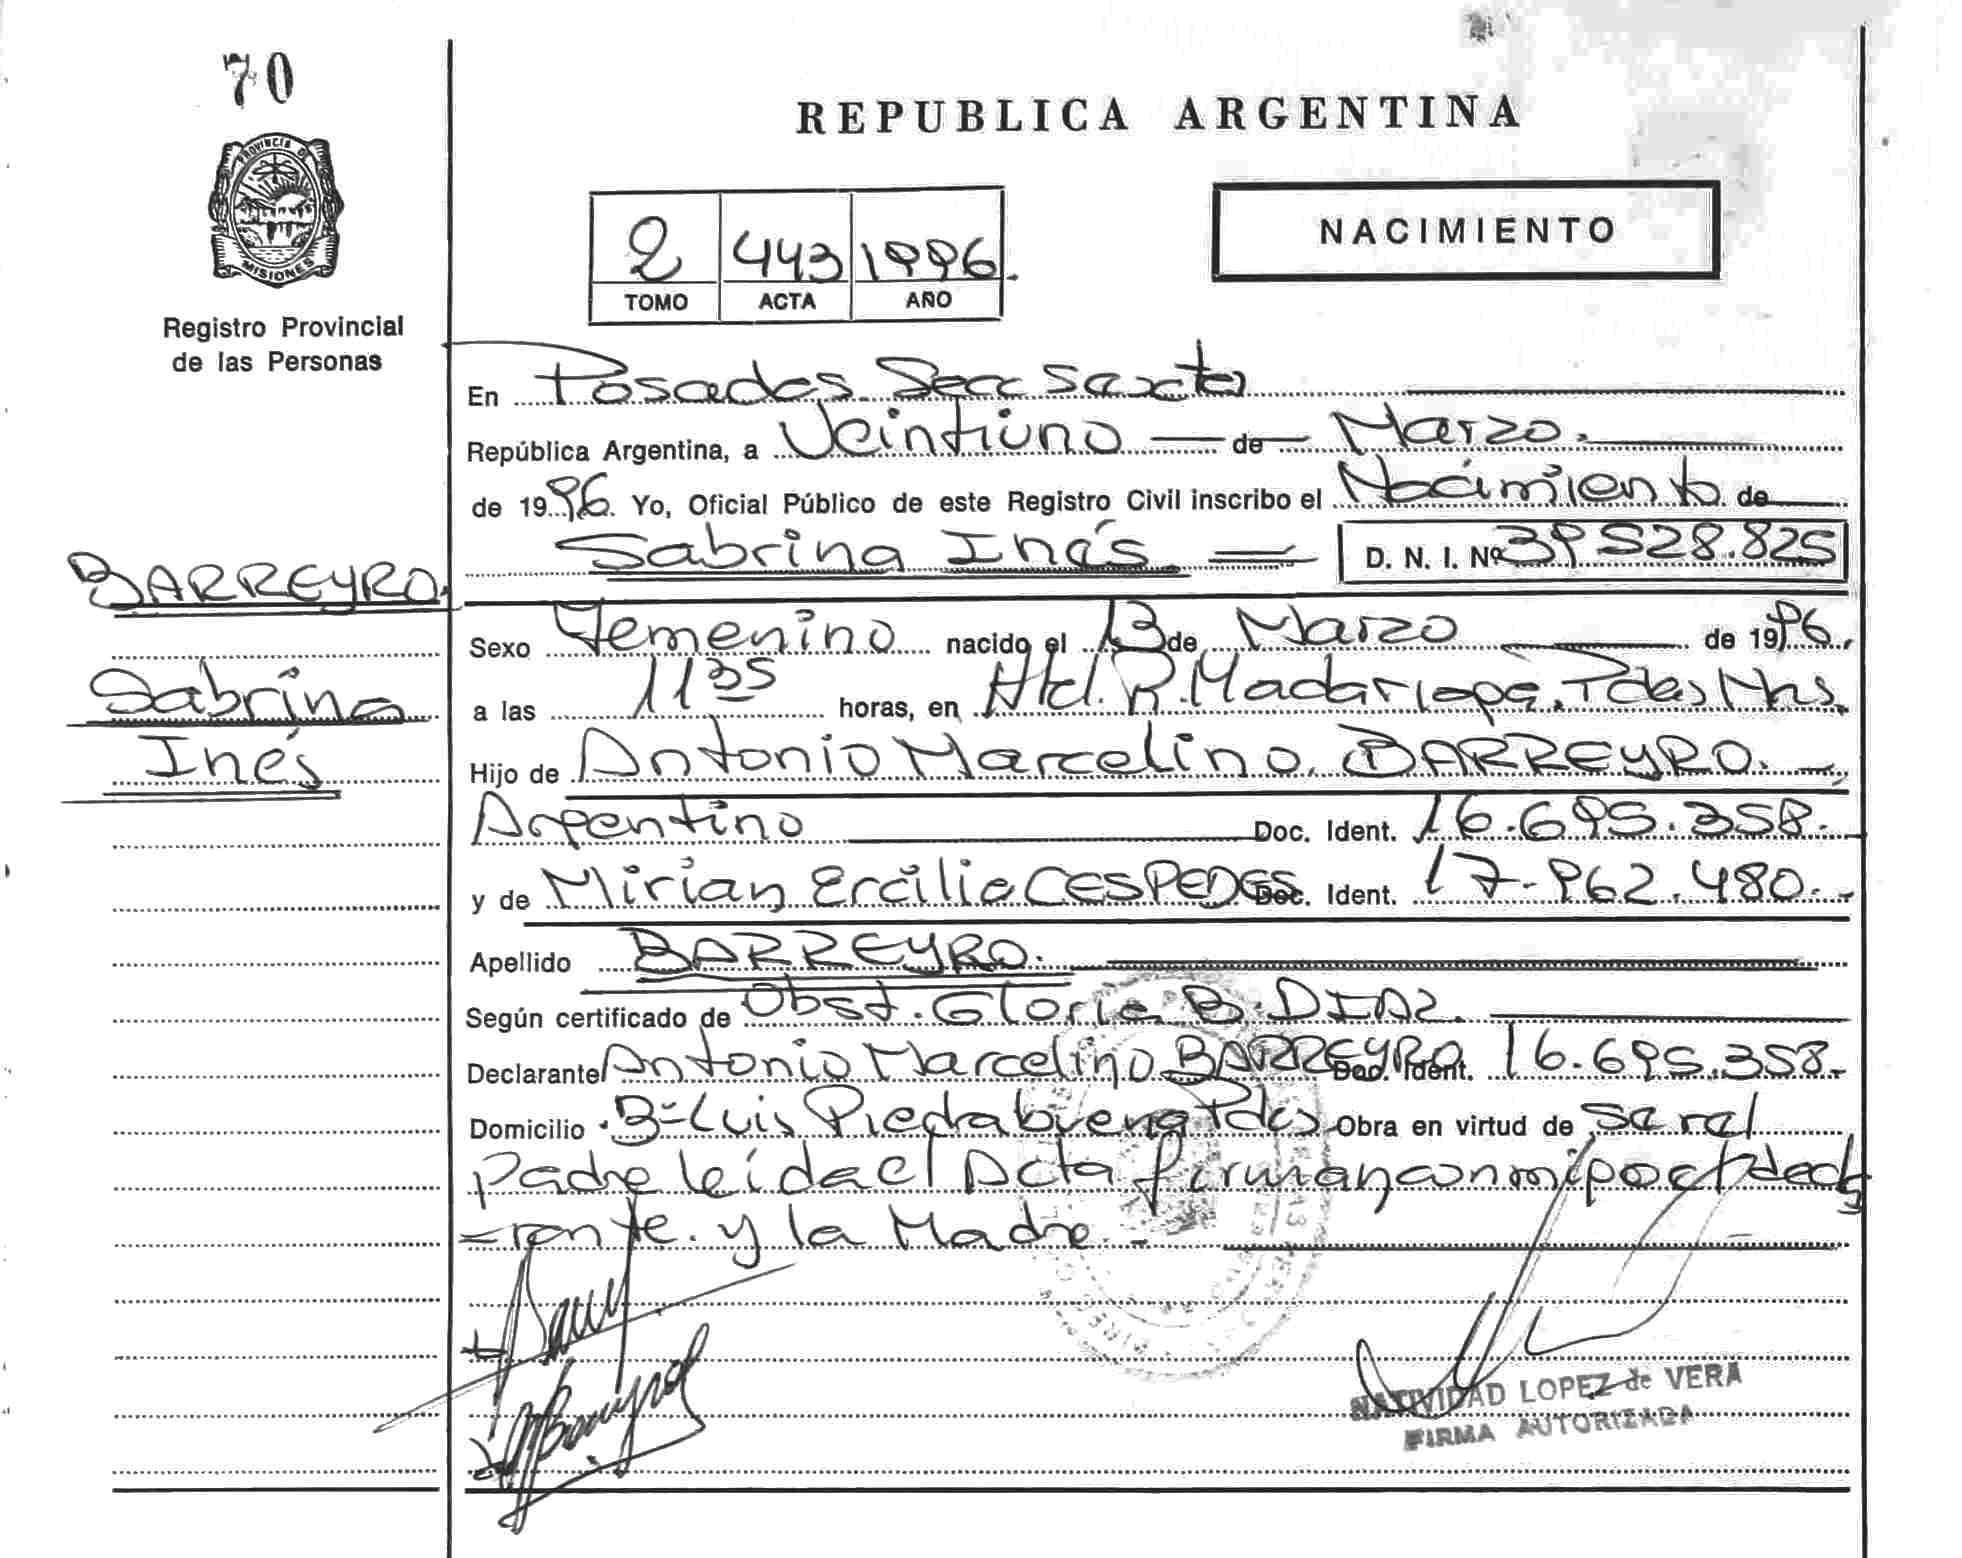 70
PROVINCIA DE
MISIONES
Registro Provincial
de las Personas
BARREYRO.
Sabrina
Inés
REPUBLICA ARGENTINA
NACIMIENTO
2 443 1996.
TOMO ACTA AÑO
En Posadas Secc Sexta
República Argentina, a Veintiuno de Marzo.
de 1996. Yo, Oficial Público de este Registro Civil inscribo el Nacimiento de
Sabrina Inés D. N. I. Nº 39 528.825
Sexo Femenino nacido el 13 de Marzo de 1996.
a las 11 35 horas, en Htal. R. Madariaga. Pdas Mns.
Hijo de Antonio Marcelino BARREYRO.
Argentino Doc. Ident. 16.695.358.
y de Mirian Ercilia CESPEDES Doc. Ident. 17.962.480.
Apellido BARREYRO.
Según certificado de Obst. Gloria B. DIAZ.
Declarante Antonio Marcelino BARREYRO Doc. Ident. 16.695.358.
Domicilio Bº Luis Piedrabuena Pdas Obra en virtud de ser el
padre leída el Acta firman conmigo el decla
rante. y la Madre.
NATIVIDAD LOPEZ de VERA
FIRMA AUTORIZADA